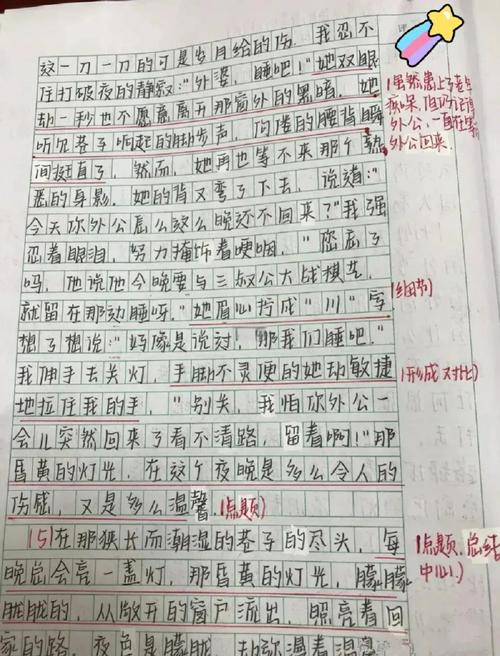 这一刀一刀的可是岁月给的伤。我忍不
住打破夜的静寂："外婆，睡吧！"她双眼
却一秒也不愿意离开那窗外的黑暗，她
听见巷子响起的脚步声，佝偻的腰背瞬
间挺直了，然而，她再也等不来那个熟
悉的身影。她的背又弯了下去，说道："
今天你外公怎么这么晚还不回来？"我强
忍着眼泪，努力掩饰着哽咽，"您忘了
吗，他说他今晚要与三叔公大战棋艺，
就留在那边睡呀。"她眉心拧成"川"字，
想了想说："好像是说过，那我们睡吧。"
我伸手去关灯，手脚不灵便的她却敏捷
地拉住我的手，"别关，我怕你外公一
会儿突然回来了看不清路，留着啊！"那
昏黄的灯光，在这个夜晚是多么令人的
伤感，又是多么温馨。
(点题)
15)在那狭长而潮湿的巷子的尽头，每
晚总会亮一盏灯，那昏黄的灯光，朦朦
胧胧的，从敞开的窗户流出，照亮着回
家的路。夜色是朦胧，却弥漫着温
评
虽然患上了老年
痴呆，但仍记得
外公，一直在等
外公回来。
(细节)
(形成对比)
(点题、总结
中心)